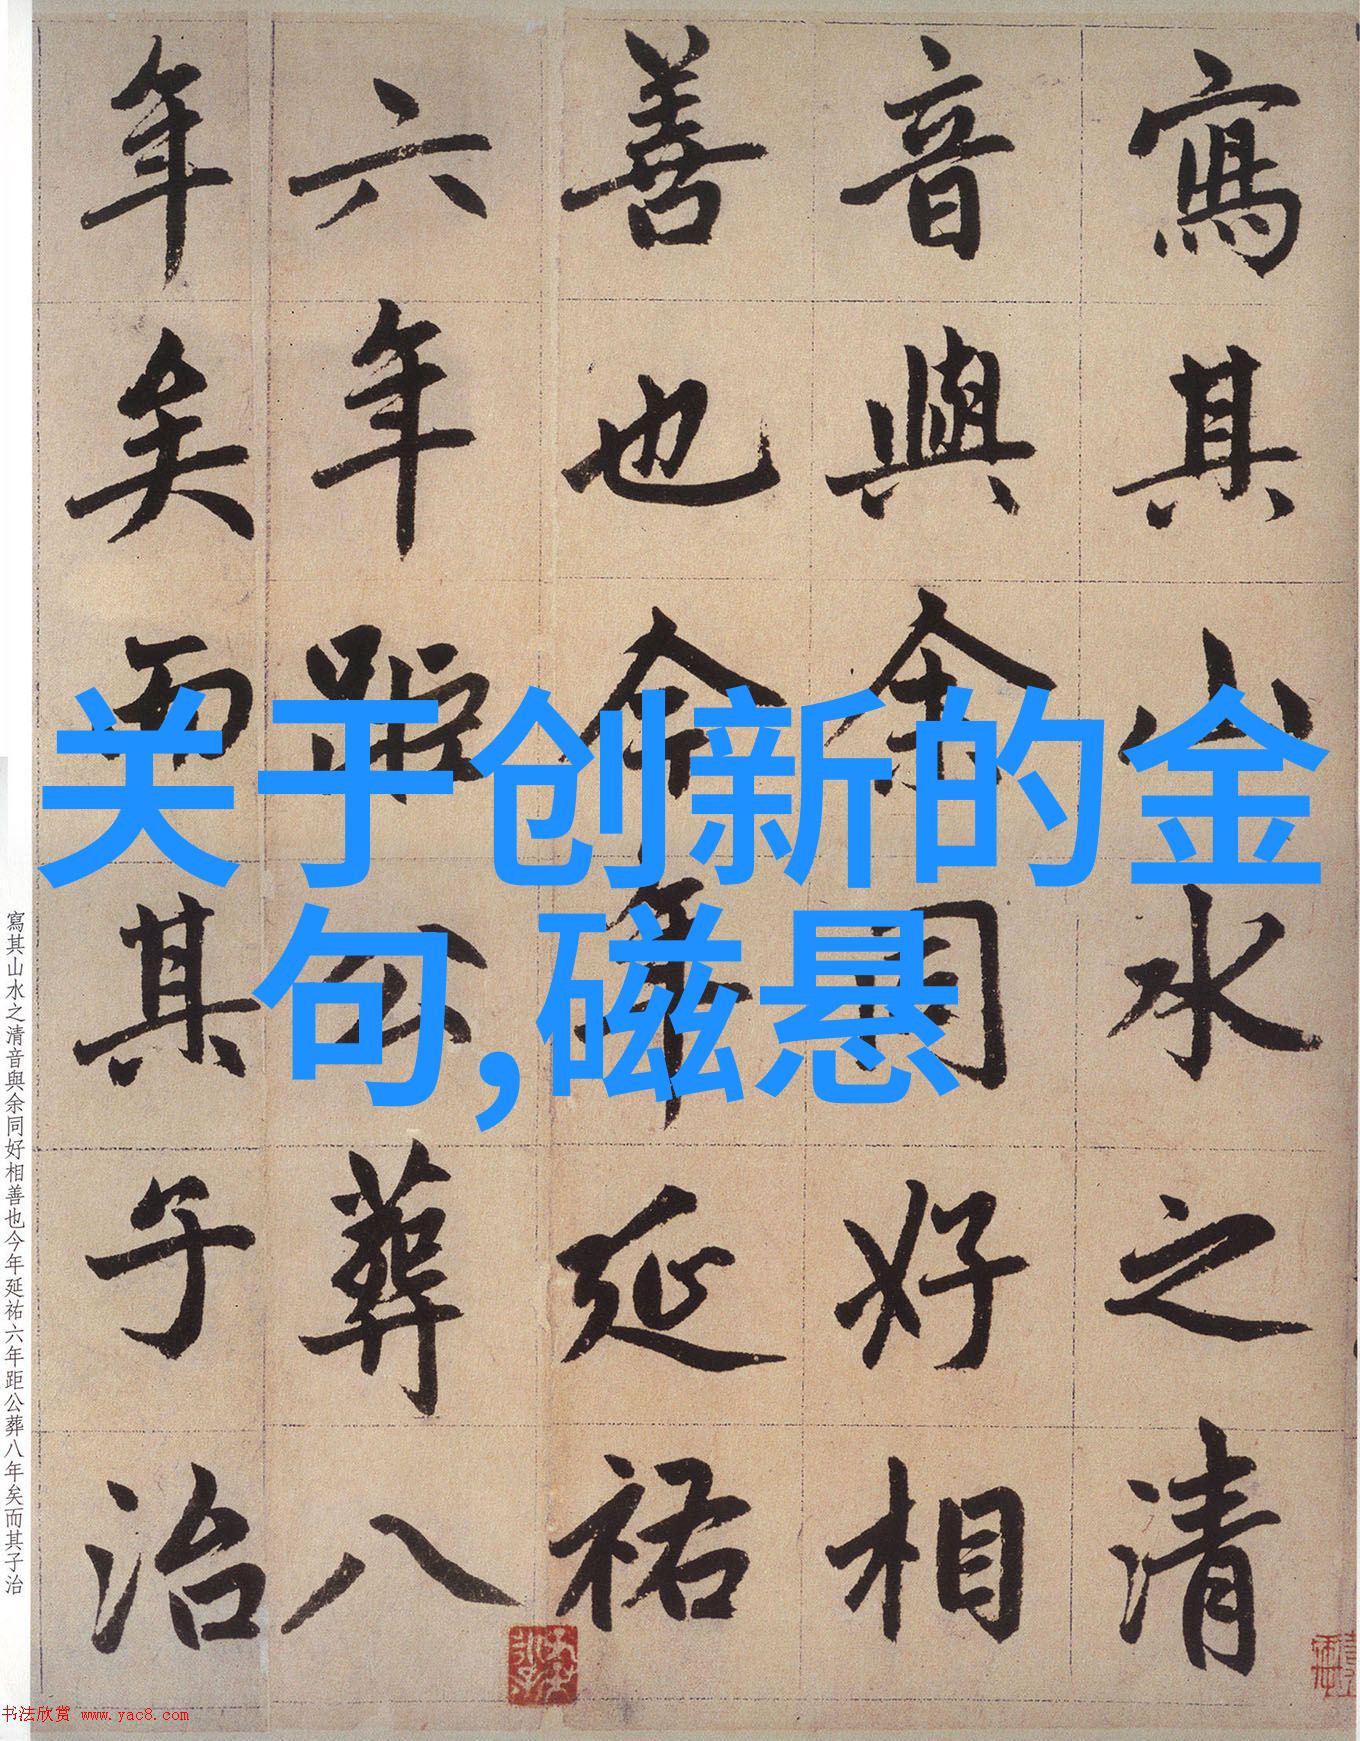 寫其山水之清
音與余同好相
善也今年延祐
六年距公葬八
年矣而其子治
关于创新的金
句,磁悬
寫其山水之清音與余同好相善也今年延祐六年距公葬八年矣而其子治
书法欣赏 www.yac8.com